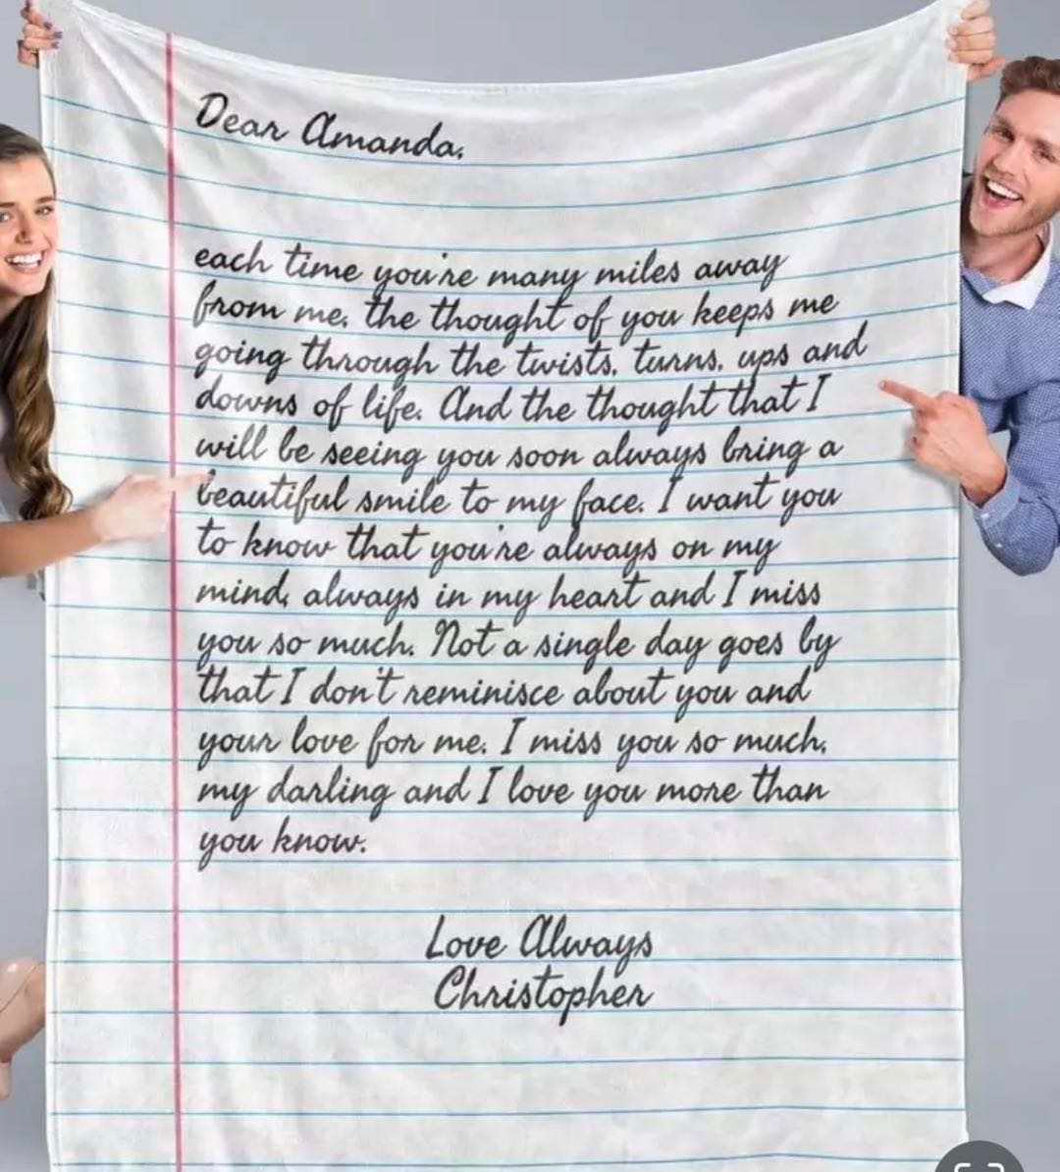 Dear Amanda,
each time you're many miles away
from me, the thought of you keeps me
going through the twists, turns, ups and
downs of life. And the thought that I
will be seeing you soon always bring a
beautiful smile to my face. I want you
to know that you're always on my
mind, always in my heart and I miss
you so much. Not a single day goes by
that I don't reminisce about you and
your love for me. I miss you so much,
my darling and I love you more than
you know.
Love Always
Christopher